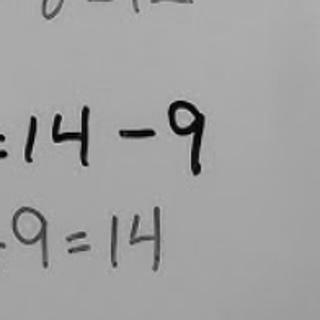 = 14 - 9
9 = 14